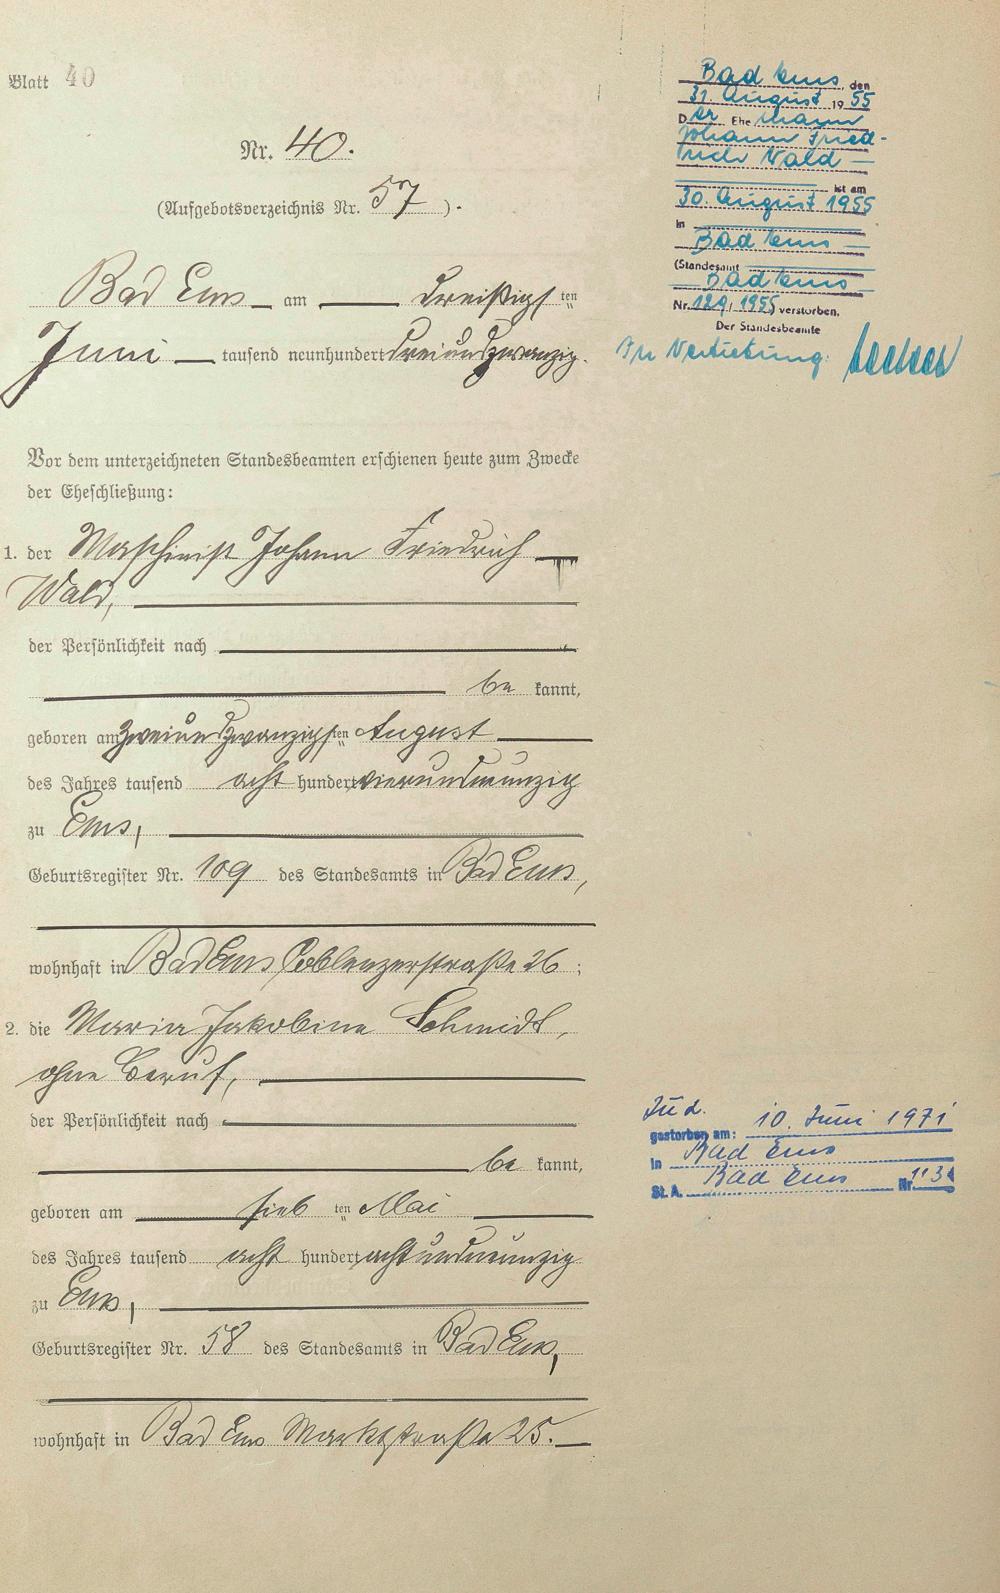 Blatt 40
Nr. 40.
(Aufgebotsverzeichnis Nr. 57).
Bad Ems am dreißigsten
Juni tausend neunhundert dreiundzwanzig.
Vor dem unterzeichneten Standesbeamten erschienen heute zum Zwecke
der Eheschließung:
1. der Maschinist Johann Friedrich
Wald,
der Persönlichkeit nach
bekannt,
geboren am zweiundzwanzigsten August
des Jahres tausend acht hundert vierundneunzig
zu Ems,
Geburtsregister Nr. 109 des Standesamts in Bad Ems,
wohnhaft in Bad Ems Coblenzerstraße 26;
2. die Maria Jakobine Schmidt,
ohne Beruf,
der Persönlichkeit nach
bekannt,
geboren am siebten Mai
des Jahres tausend acht hundert achtundneunzig
zu Ems,
Geburtsregister Nr. 58 des Standesamts in Bad Ems,
wohnhaft in Bad Ems Marktstraße 25.
Bad Ems, den
31. August 1955
Der Ehemann
Johann Fried-
rich Wald
ist am
30. August 1955
in
Bad Ems
(Standesamt
Bad Ems
Nr. 129, 1955) verstorben.
Der Standesbeamte
In Vertretung:
Zu 2.
gestorben am: 10. Juni 1971
in Bad Ems
St. A. Bad Ems Nr.